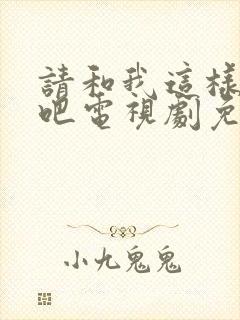 請和我這樣
吧電視劇免
小九鬼鬼